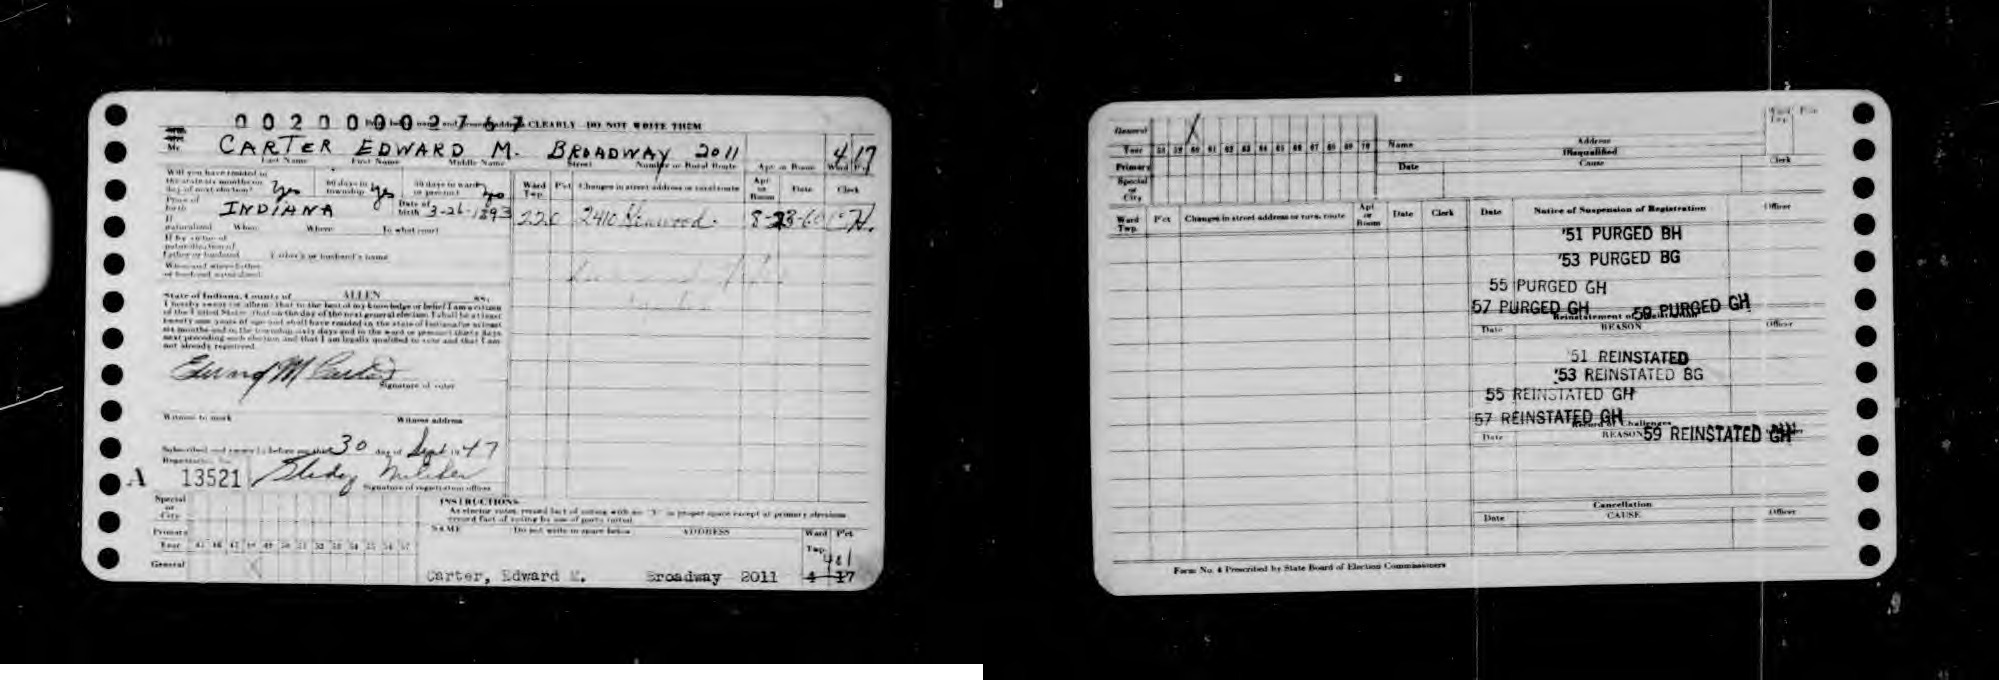 00200002767 CLEARLY DO NOT WRITE THEM
Mr. CARTER EDWARD M. BROADWAY 2011 4 17
Last Name First Name Middle Name Street Number or Rural Route Apt. or Room Ward Pct
Will you have resided in the state six months on day of next election? Yes 60 days in township Yes 30 days in ward or precinct Yes
Place of birth INDIANA Date of birth 3-26-1893
If naturalized When Where In what court
If by virtue of naturalization of Father or husband Father's or husband's name
When and where father or husband naturalized
Ward Twp. Pct Changes in street address or rural route Apt or Room Date Clerk
220 2410 8-23-60
State of Indiana, County of ALLEN ss:
I hereby swear (or affirm) that to the best of my knowledge or belief I am a citizen
of the United States, that on the day of the next general election I shall be at least
twenty-one years of age and shall have resided in the state of Indiana for at least
six months and in the township sixty days and in the ward or precinct thirty days
next preceding such election and that I am legally qualified to vote and that I am
not already registered.
Edward M Carter
Signature of voter
Witness to mark Witness address
Subscribed and sworn to before me this 30 day of Sept 19 47
Registration No.
A 13521
Signature of registration officer
Special or City
Primary
Year 45 46 47 48 49 50 51 52 53 54 55 56 57
General X
INSTRUCTIONS
As elector votes, record fact of voting with an "X" in proper space except at primary elections
record fact of voting by use of party initial.
NAME Do not write in space below ADDRESS Ward Twp. Pct
Carter, Edward M. Broadway 2011 4 17
General
Year 58 59 60 61 62 63 64 65 66 67 68 69 70
Primary
Special or City
Name Address Ward Twp. Pct
Disqualified
Date Cause Clerk
Ward Twp. Pct Changes in street address or rural route Apt or Room Date Clerk
Date Notice of Suspension of Registration Officer
'51 PURGED BH
'53 PURGED BG
55 PURGED GH
57 PURGED GH 59 PURGED GH
Reinstatement of Registration
Date REASON Officer
'51 REINSTATED
'53 REINSTATED BG
55 REINSTATED GH
57 REINSTATED GH
Record of Challenges
Date REASON 59 REINSTATED GH
Cancellation
Date CAUSE Officer
Form No. 4 Prescribed by State Board of Election Commissioners